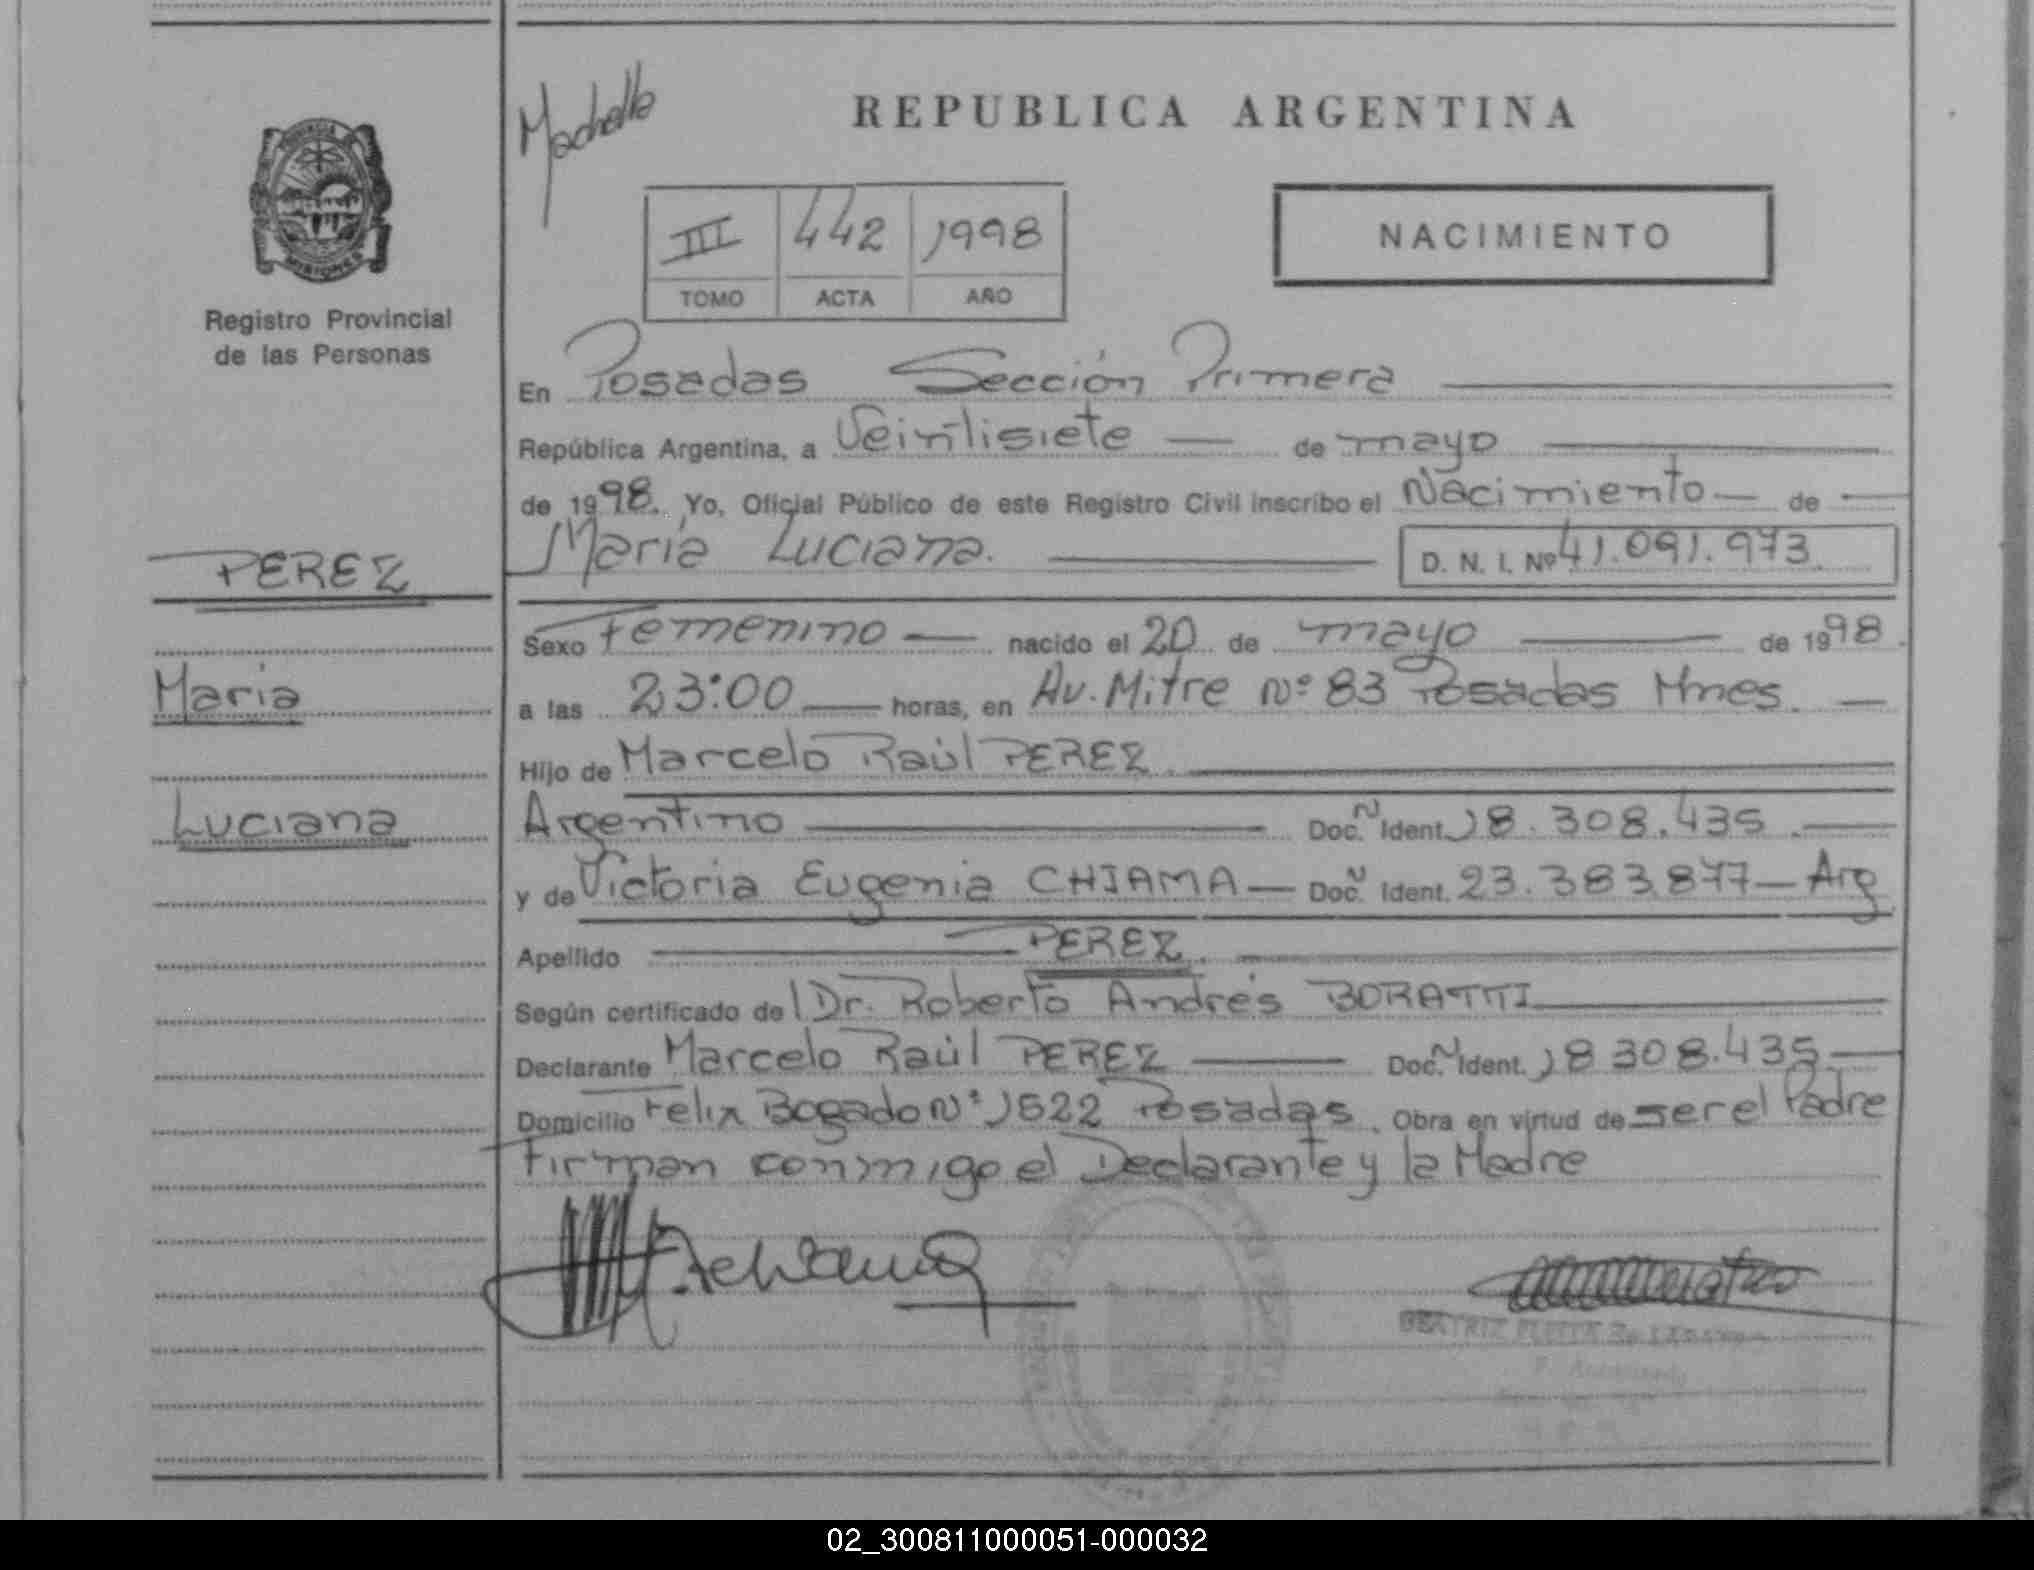 REPUBLICA ARGENTINA
III 442 1998
TOMO ACTA AÑO
NACIMIENTO
MISIONES
Registro Provincial
de las Personas
En Posadas Sección Primera
República Argentina, a Veintisiete de mayo
de 1998. Yo, Oficial Público de este Registro Civil inscribo el Nacimiento de
María Luciana. D. N. I. Nº 41.091.973.
PEREZ
Sexo Femenino nacido el 20 de mayo de 1998.
María
a las 23:00 horas, en Av. Mitre Nº 83 Posadas Mnes.
Hijo de Marcelo Raúl PEREZ.
Luciana
Argentino Doc. N Ident. 18.308.435.
y de Victoria Eugenia CHIAMA Doc. N Ident. 23.383.877 Arg
Apellido PEREZ.
Según certificado del Dr. Roberto Andrés BORATTI
Declarante Marcelo Raúl PEREZ Doc. N Ident. 18 308.435
Domicilio Felix Bogado Nº 1522 Posadas. Obra en virtud de ser el Padre
Firman conmigo el Declarante y la Madre
BEATRIZ
02_300811000051-000032